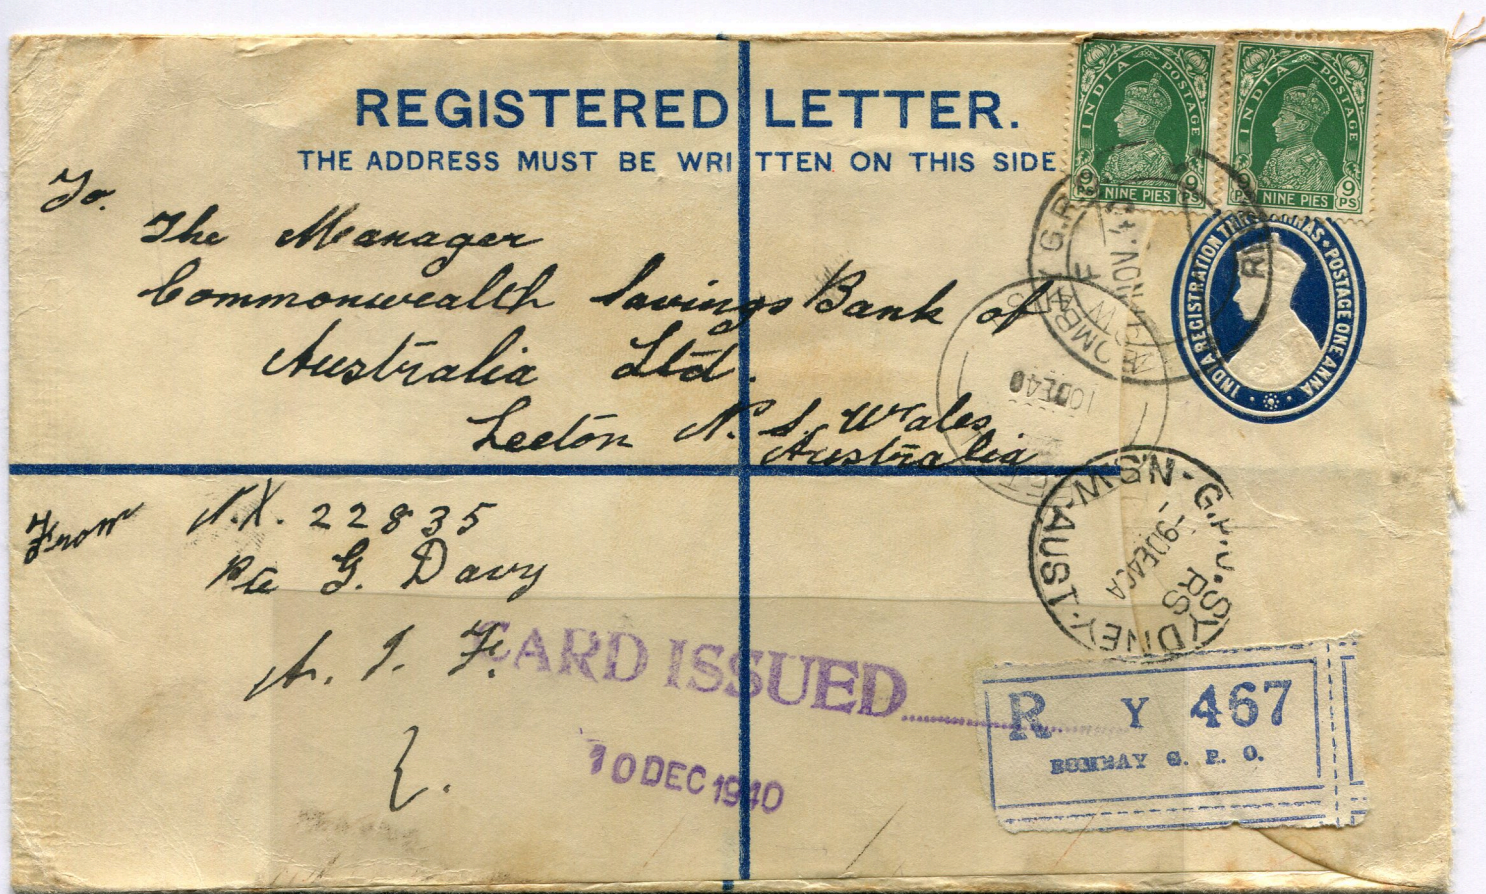 REGISTERED LETTER.
THE ADDRESS MUST BE WRITTEN ON THIS SIDE
INDIA POSTAGE
9 PS NINE PIES 9 PS
INDIA POSTAGE
9 PS NINE PIES 9 PS
INDIA REGISTRATION THREE ANNAS + POSTAGE ONE ANNA
BOMBAY G.P.O.
NOV. 4
To.
The Manager
Commonwealth Savings Bank of
Australia Ltd.
Leeton N. S. Wales
Australia
10DE40
N.S.W. AUST. G.P.O. SYDNEY
-9DE40A
RS
From N.X. 22835
Pte G. Davy
A. I. F.
CARD ISSUED
10 DEC 1940
R Y 467
BOMBAY G. P. O.